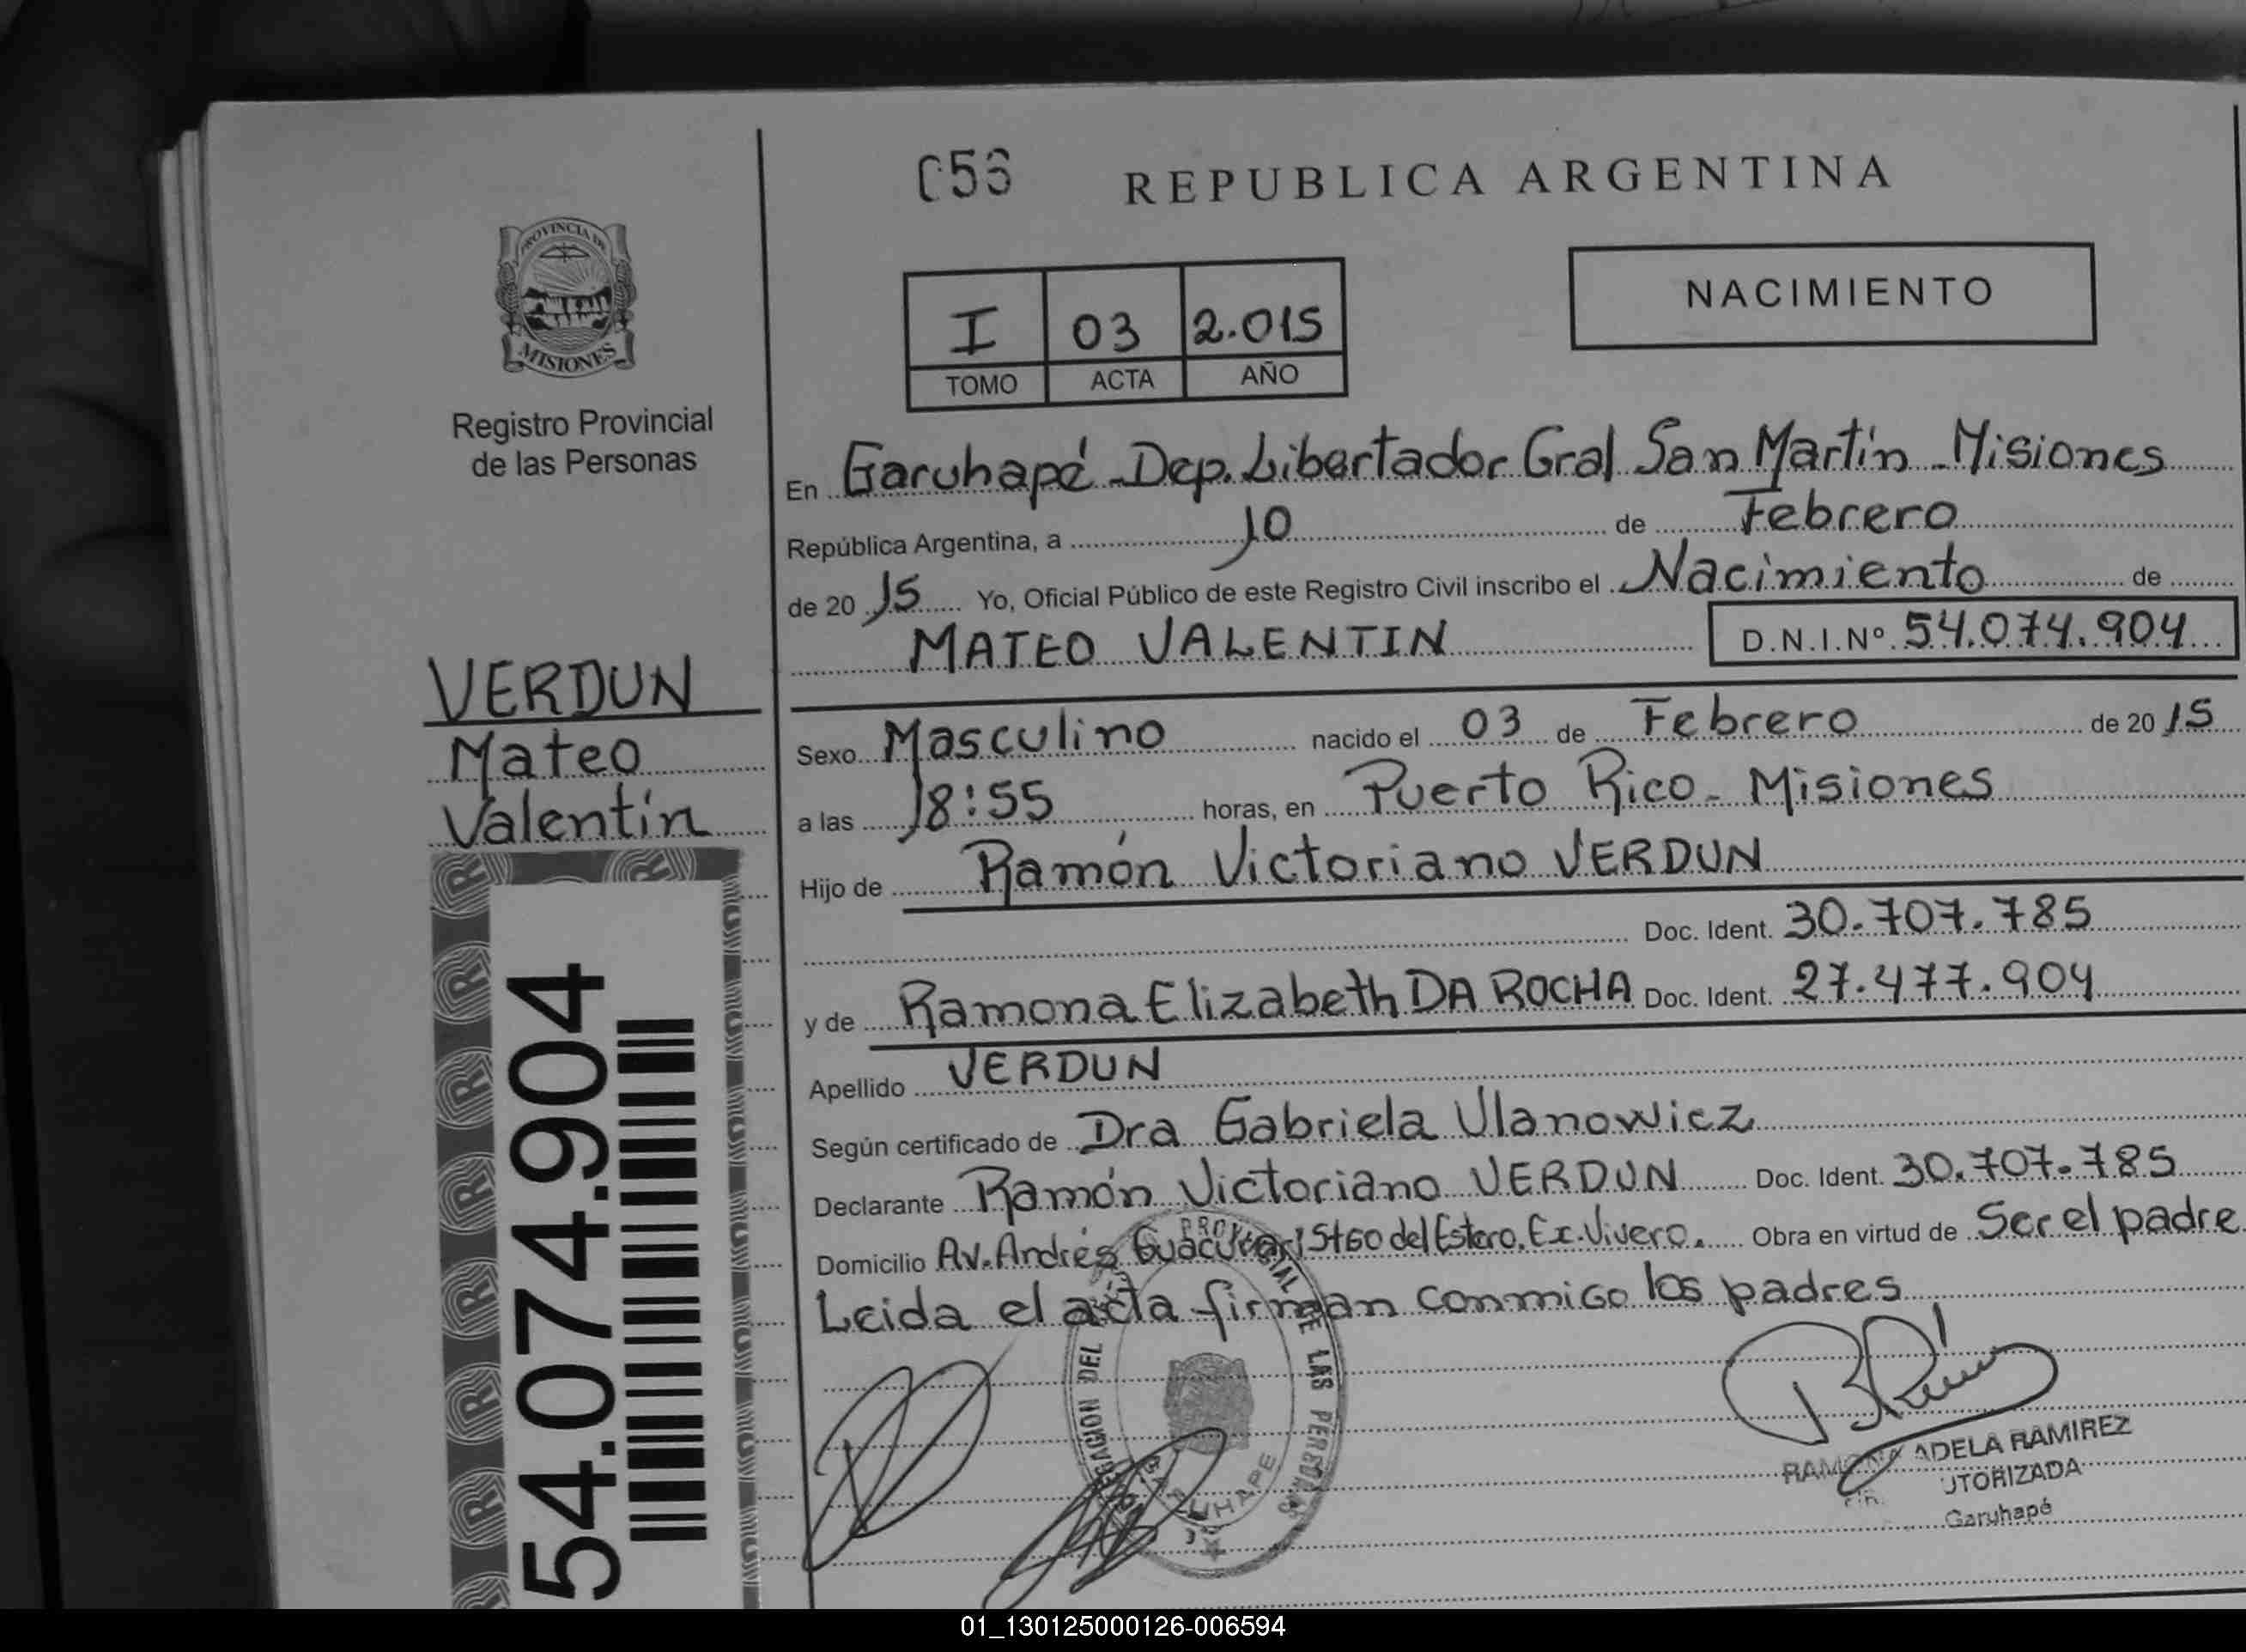 056 REPUBLICA ARGENTINA
PROVINCIA DE
MISIONES
NACIMIENTO
I 03 2.015
TOMO ACTA AÑO
Registro Provincial
de las Personas
En Garuhapé - Dep. Libertador Gral San Martín - Misiones
República Argentina, a 10 de Febrero
de 20 15 Yo, Oficial Público de este Registro Civil inscribo el Nacimiento de
MATEO VALENTIN D.N.I.Nº 54.074.904
VERDUN
Mateo
Valentín
Sexo Masculino nacido el 03 de Febrero de 20 15
a las 18:55 horas, en Puerto Rico - Misiones
Hijo de Ramón Victoriano VERDUN
Doc. Ident. 30.707.785
y de Ramona Elizabeth DA ROCHA Doc. Ident. 27.477.904
Apellido VERDUN
Según certificado de Dra Gabriela Ulanowicz
Declarante Ramón Victoriano VERDUN Doc. Ident. 30.707.785
Domicilio Av. Andrés Stgo del Estero, Ex. Vivero. Obra en virtud de Ser el padre
Leida el acta firman conmigo los padres
54.074.904
PROVINCIAL DE LAS PERSONAS
DEL
GARUHAPE
ADELA RAMIREZ
UTORIZADA
Garuhapé
01_130125000126-006594